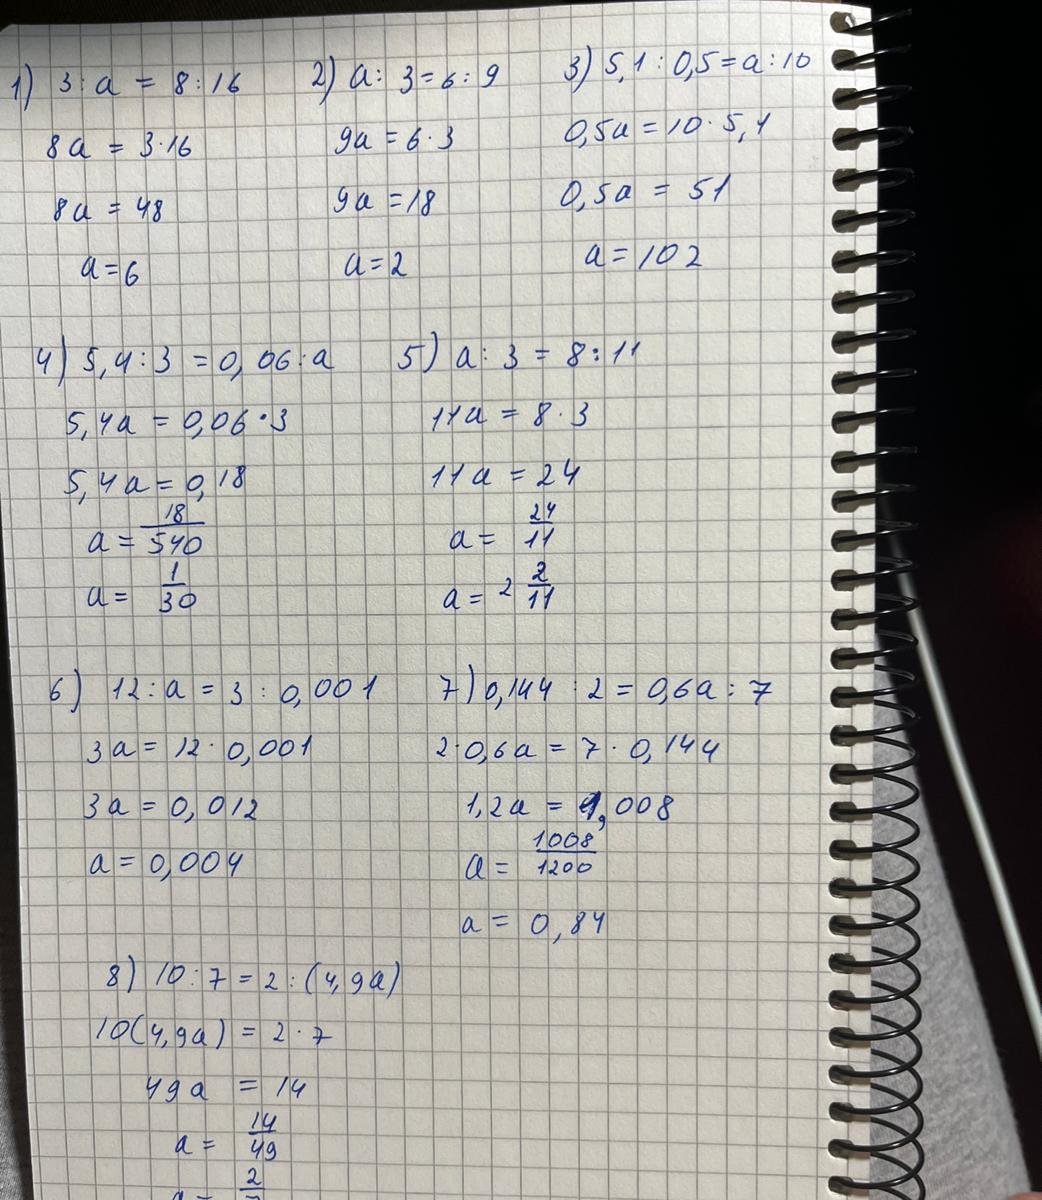 1) 3 : a = 8 : 16
8a = 3·16
8a = 48
a = 6
2) a : 3 = 6 : 9
9a = 6·3
9a = 18
a = 2
3) 5,1 : 0,5 = a : 10
0,5a = 10·5,1
0,5a = 51
a = 102
4) 5,4 : 3 = 0,06 : a
5,4a = 0,06·3
5,4a = 0,18
a = 18/540
a = 1/30
5) a : 3 = 8 : 11
11a = 8·3
11a = 24
a = 24/11
a = 2 2/11
6) 12 : a = 3 : 0,001
3a = 12·0,001
3a = 0,012
a = 0,004
7) 0,144 : 2 = 0,6a : 7
2·0,6a = 7·0,144
1,2a = 1,008
a = 1008/1200
a = 0,84
8) 10 : 7 = 2 : (4,9a)
10(4,9a) = 2·7
49a = 14
a = 14/49